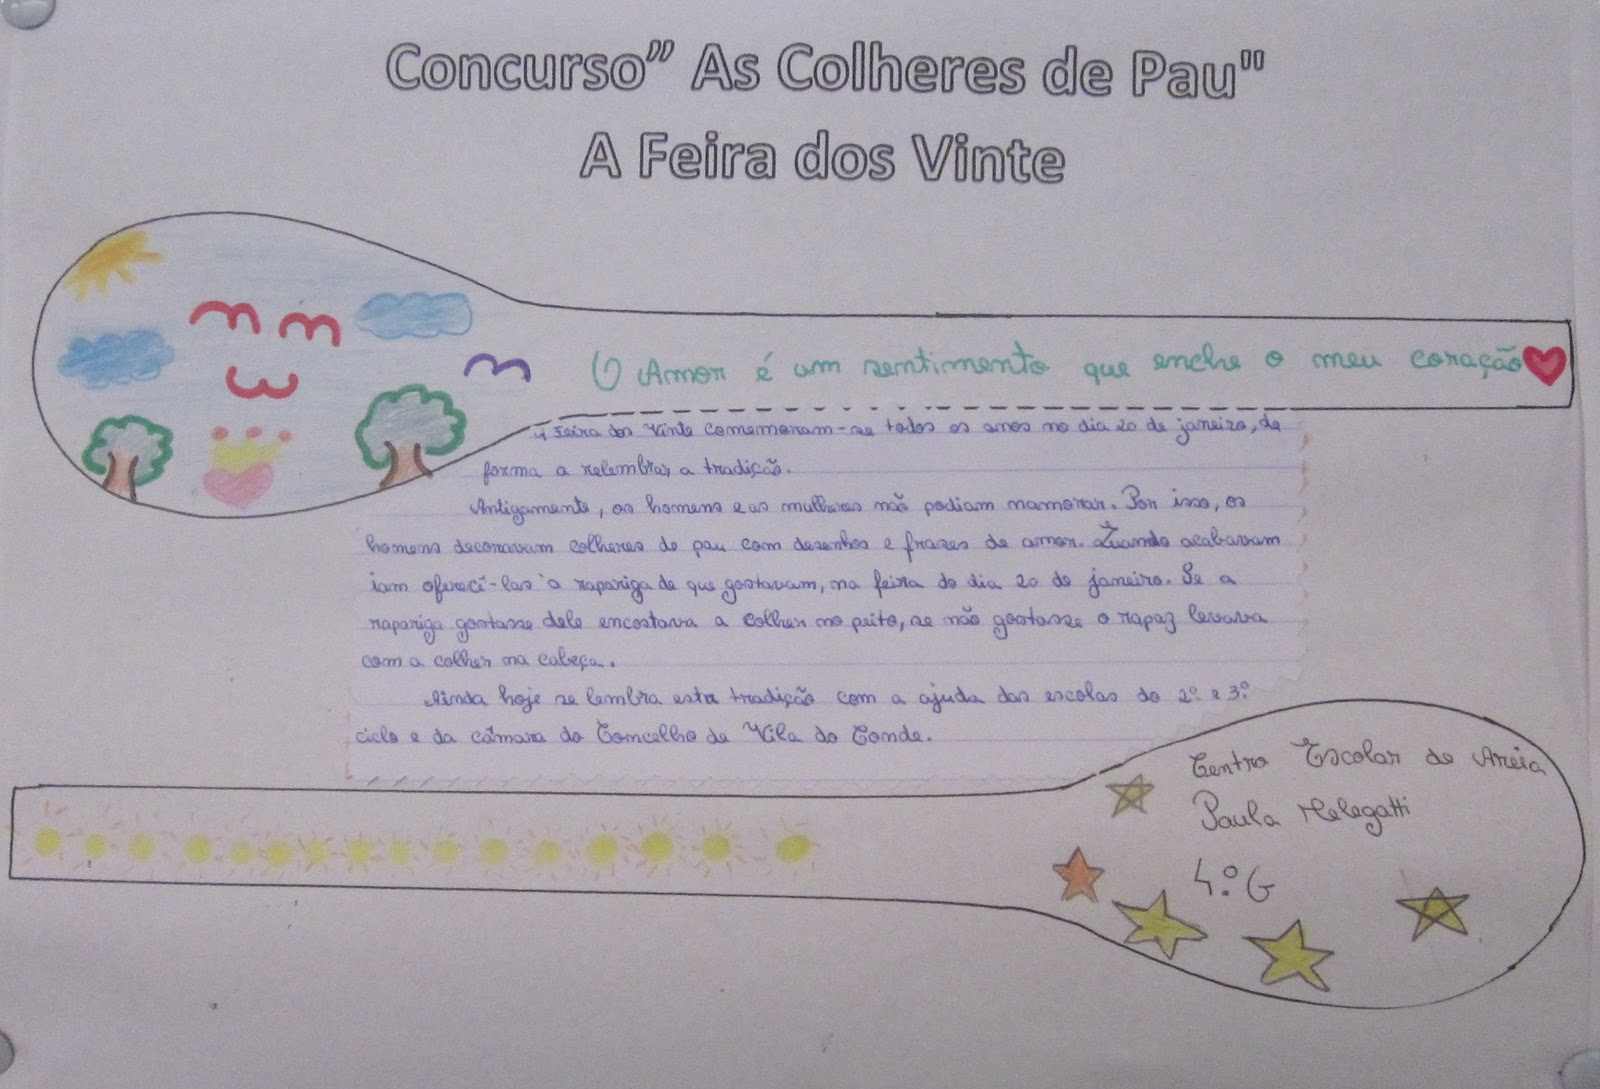 Concurso" As Colheres de Pau"
A Feira dos Vinte
O Amor é um sentimento que enche o meu coração
A Feira dos Vinte comemoram-se todos os anos no dia 20 de janeiro, de
forma a relembrar a tradição.
Antigamente, os homens e as mulheres não podiam namorar. Por isso, os
homens decoravam colheres de pau com desenhos e frases de amor. Quando acabavam
iam oferecê-las à rapariga de que gostavam, na feira do dia 20 de janeiro. Se a
rapariga gostasse dele encostava a colher no peito, se não gostasse o rapaz levava
com a colher na cabeça.
Ainda hoje se lembra esta tradição com a ajuda das escolas do 2º e 3º
ciclo e da câmara do Concelho de Vila do Conde.
Centro Escolar de Areia
Paula Melegatti
4.º G